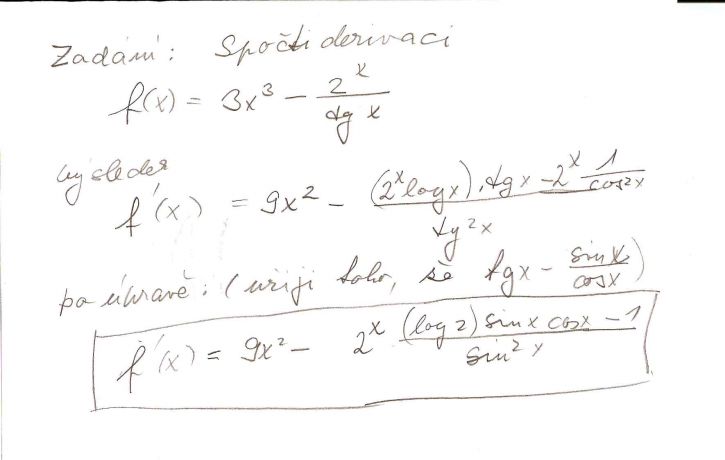 Zadání: Spočti derivaci
f(x) = 3x³ - 2ˣ / tg x
výsledek
f'(x) = 9x² - ((2ˣ log x) . tg x - 2ˣ 1/cos²x) / tg²x
po úpravě: (užiji toho, že tg x - sin x / cos x)
f'(x) = 9x² - 2ˣ ((log 2) sin x cos x - 1) / sin² x